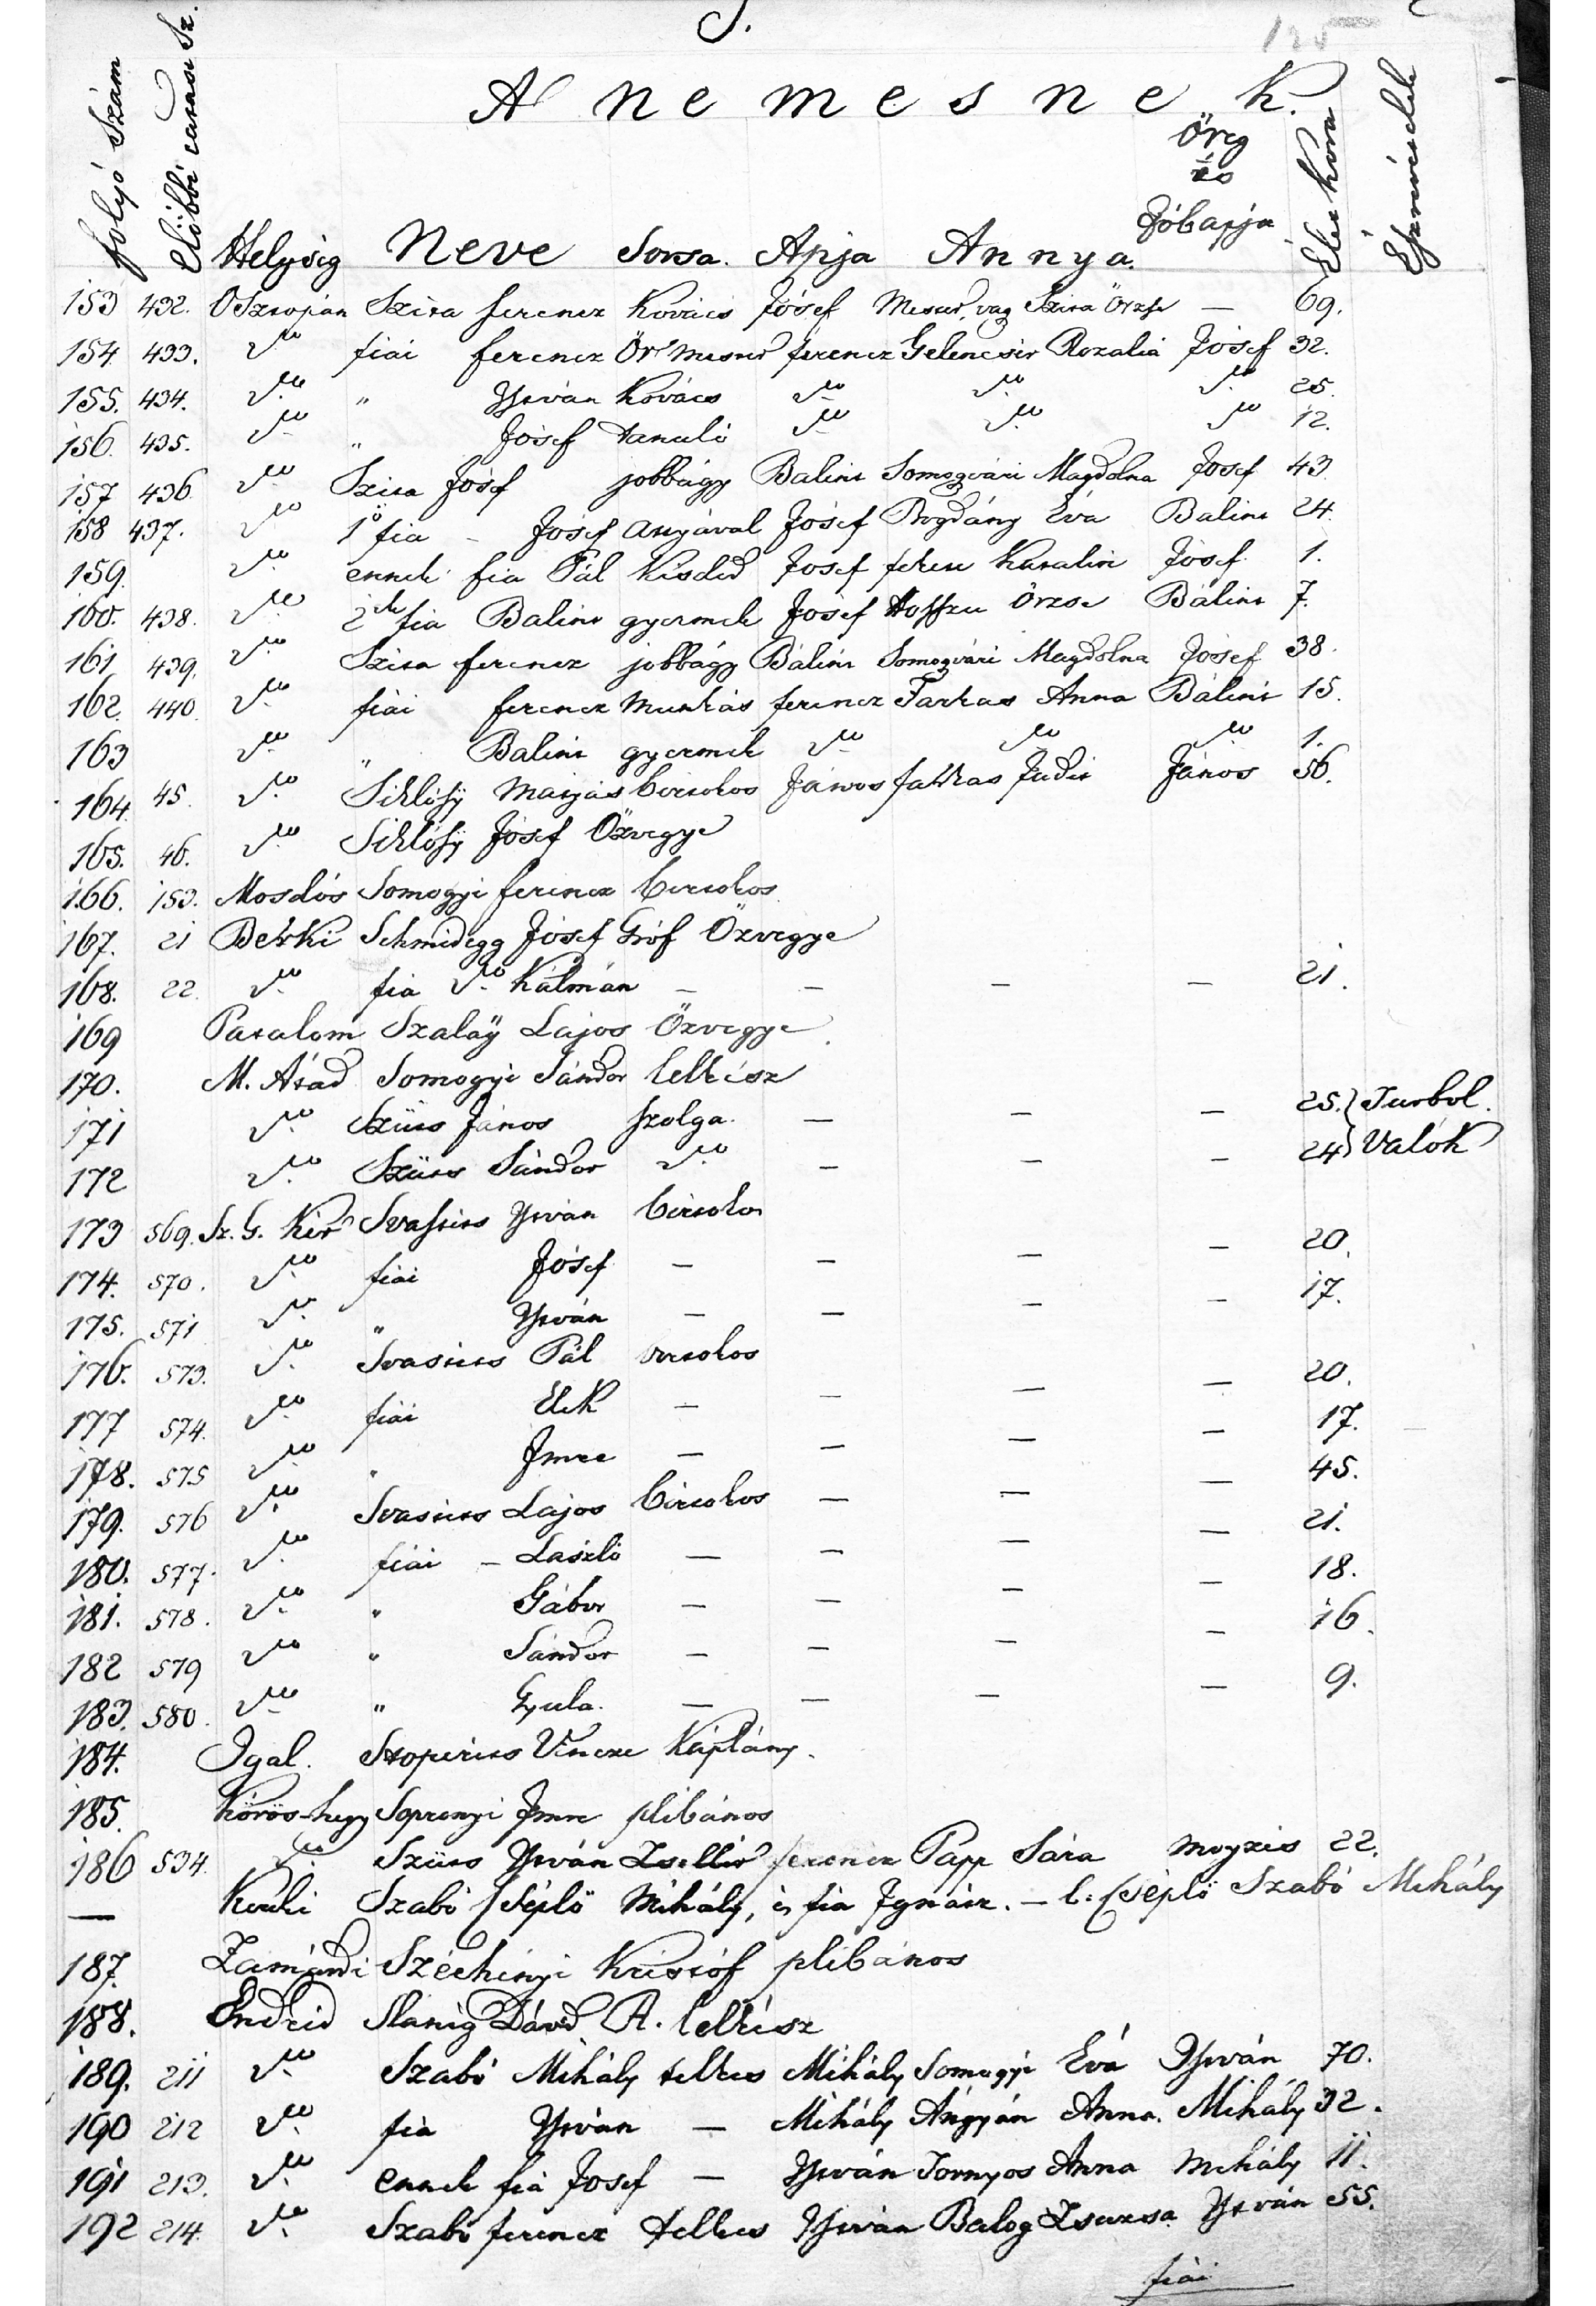 S.
125
A nemesnek.
folyó Szám Előbbi Helység Neve Sorsa. Apja Annya. Öreg és Jóbapja Élet Kora Észrevételek
153 432. OSzopján Szita ferencz Kovács Jósef Örzse — 69.
154 433. do fiai ferencz ferencz Gelencsér Rozalia Jósef 32.
155. 434. do " Ystván Kovács do do do 25.
156. 435. do " Jósef tanuló do do do 12.
157 436. do Szita Jósef jobbágy Bálint Somogvári Magdolna Josef 43.
158 437. do 1ő fia – Jósef anyával Jósef Bogdány Éva Balint 24.
159. do ennek fia Pál kisded Josef fekete Katalin Jósef 1.
160. 438. do 2ik fia Balint gyermek Jósef Hosszu Örzse Bálint 7.
161 439. do Szita ferencz jobbágy Bálint Somogvári Magdolna Jósef 38.
162. 440. do fiai ferencz Munkás ferencz Farkas Anna Bálint 15.
163 do " Balint gyermek do do do 1.
164. 45. do Siklósy Matyás birtokos János farkas Judit János 56.
165. 46. do Siklósy Jósef Özvegye
166. 153. Mosdós Somogyi ferencz birtokos.
167. 21 Berki Schmidegg Jósef Gróf Özvegye
168. 22. do fia do Kálmán — — — — 21.
169 Patalom Szalaÿ Lajos Özvegye.
170. M. Átád Somogyi Sándor lelkész
171 do Szücs János szolga. — — — 25. } Surbol.
172 do Szücs Sándor do — — — 24 } Valók
173 569. Sz. G. Kir Svastics Ystván birtokos
174. 570. do fiai Jósef — — — — 20.
175. 571 do " Ystván — — — — 17.
176. 573. do Svastics Pál birtokos
177 574. do fiai Elek — — — — 20.
178. 575 do " Jmre — — — — 17.
179. 576 do Svastics Lajos birtokos — — — 45.
180. 577. do fiai – László — — — — 21.
181. 578. do " Gábor — — — — 18.
182 579 do " Sándor — — — — 16.
183. 580. do " Gyula. — — — — 9.
184. Igal. Vincze Káplány.
185. Körös-hegy Soprenyi Jmre plibános
186 534. do Szücs Ystván Zsellér ferencz Papp Sára Moyzis 22.
— Szabó Cséplő Mihály, és fia Jgnácz. — l: Cséplő Szabó Mihály
187. Zamárdi Széchényi Kristóf plibános
188. Endréd Slanig Dávid R. lelkész
189. 211 do Szabó Mihály telkes Mihály Somogyi Éva Ystván 70.
190 212 do fia Ystván — Mihály Angyán Anna. Mihály 32.
191 213. do ennek fia Josef — Ystván Tornyos Anna Mihály 11.
192 214. do Szabó ferencz telkes Ystván Balog Zsuzsa Ystván 55.
fiai